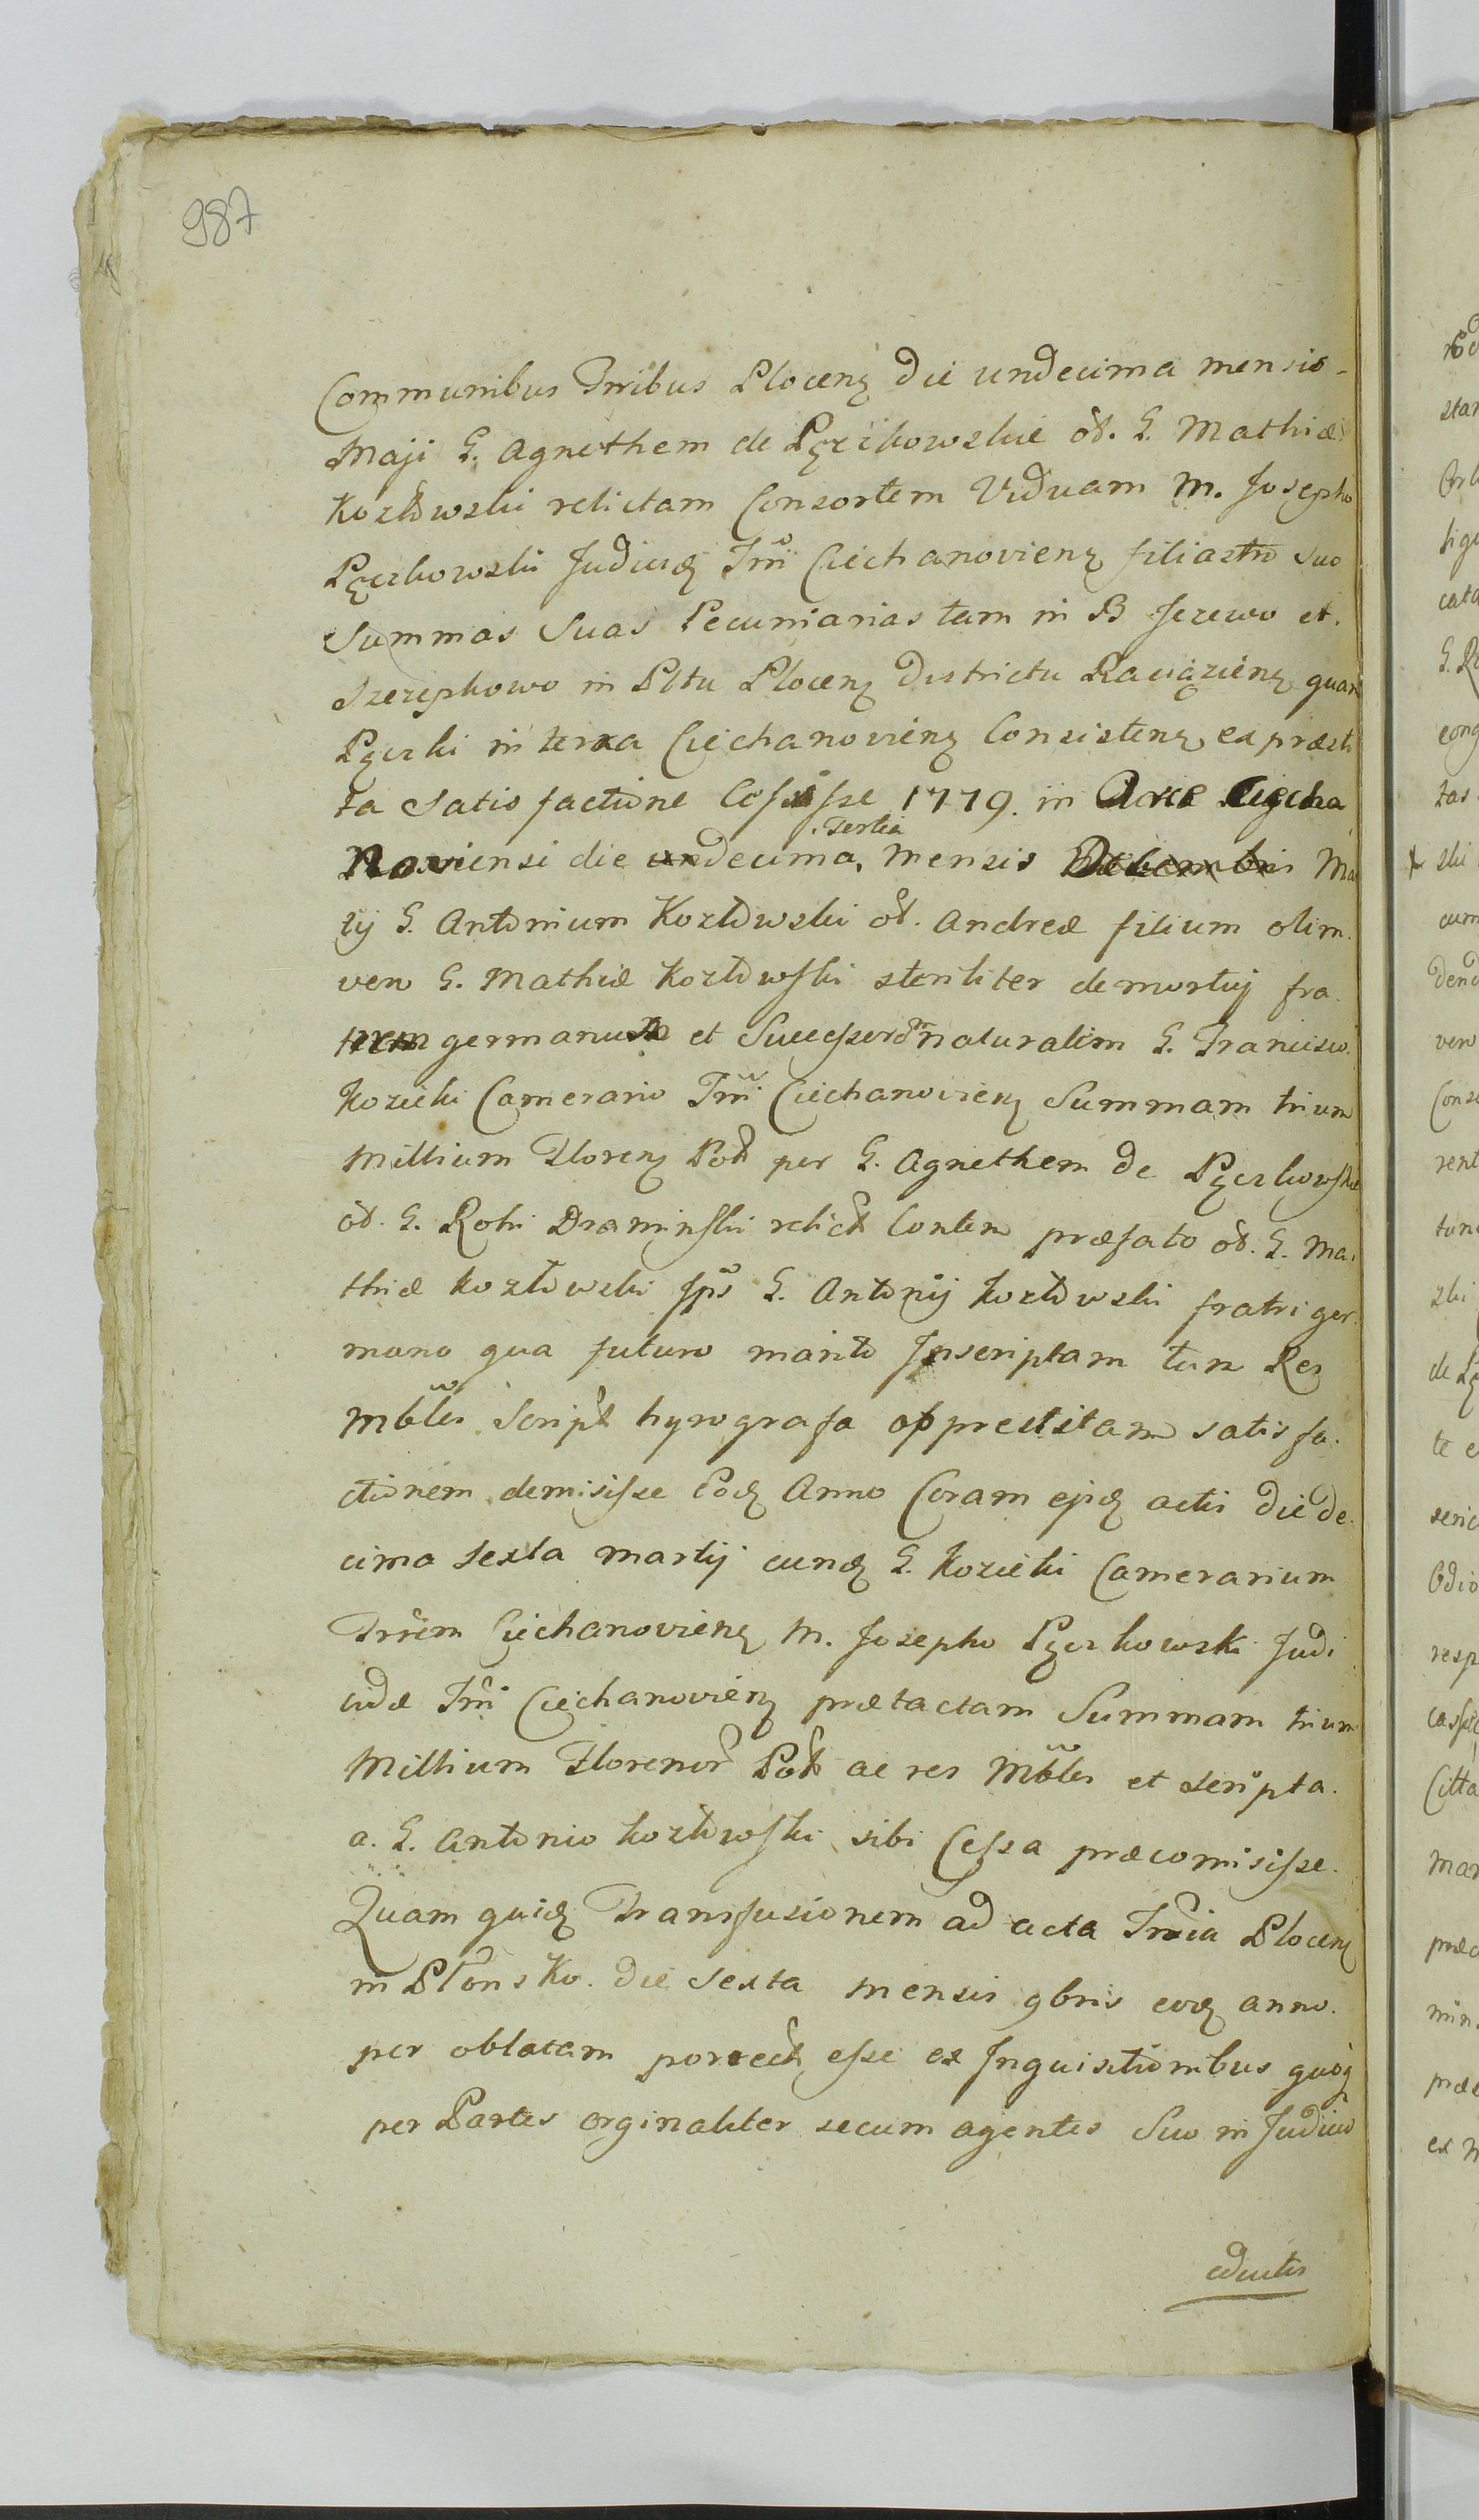 987
Communibus Trribus Plocen͢ die undecima mensis
Maji G. Agnethem de Pęczkowskie ol. G. Mathiæ
Kozłowski relictam Consortem Viduam M. Josepho
Pęczkowski Judici Trrii Ciechanovien͢ filiastro suo
Summas Suas Pecuniarias tam in B Jezewo et
Szczepkowo in Pltu Plocen͢ Districtu Raciązien͢ quam
Pęczki in terra Ciechanovien͢ Consisten͢ ex præsti
ta Satisfactione Cessisse 1779. in Arce Ciecha
Noviensi die undecima, Tertia mensis Decembris Mar
tij G. Antonium Kozłowski ol. Andreæ filium olim
vero G. Mathiæ Kozłowski steriliter demortuj fra
trem germanum et Successorem naturalem G. Francisco
Kozicki Camerario Trrii Ciechanovien͢ Summam trium
Millium Floren͢ Pol per G. Agnethem de Pęczkowskie
ol. G. Rohi Draminski relict Contem præfato ol. G. Ma
thiæ Kozłowski Jpsius G. Antonij Kozłowski fratri ger
mano qua futuro marito Inscriptam tum Res
Mbles Script hyrografa ob prestitam satisfa
ctionem demisisse Eod Anno Coram ejsd actis die de
cima sexta martij eund G. Kozicki Camerarium
Trrem Ciechanovien͢ M. Josepho Pęczkowski Judi
ci Trrii Ciechanovien͢ prætactam Summam trium
Millium Florenor Pol ac res Mbles et scripta
a. G. Antonio Kozłowski sibi Cessa præcomisisse.
Quam quid Transfusionem ad acta Trria Plocen͢
in Płonsko. die Sexta mensis 9bris eod anno.
per oblatam porrect esse ex Inquisitionibus quoq
per Partes orginaliter secum agentes Suo in Judicio
eductis